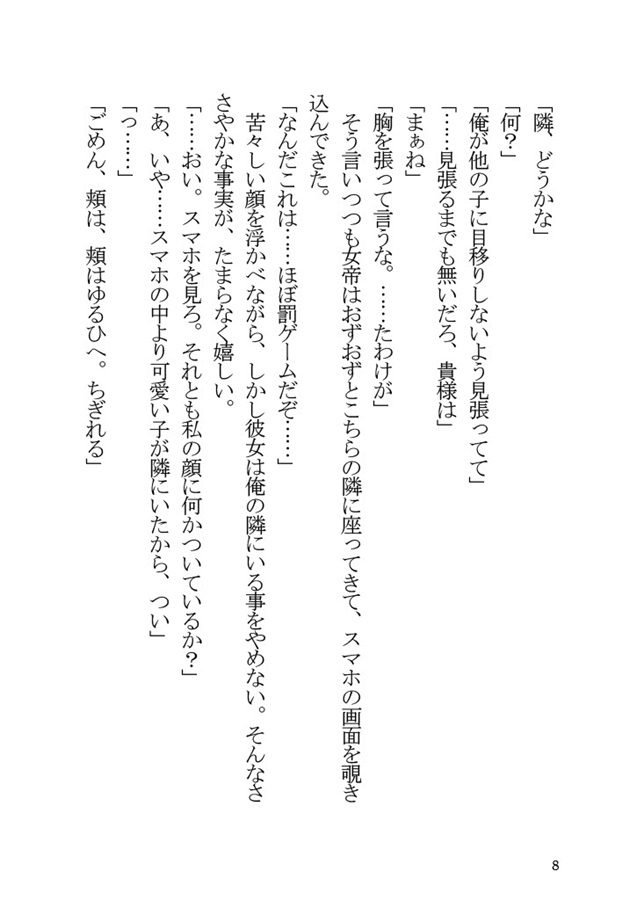 「隣、どうかな」
「何？」
「俺が他の子に目移りしないよう見張ってて」
「……見張るまでも無いだろ、貴様は」
「まぁね」
「胸を張って言うな。……たわけが」
　そう言いつつも女帝はおずおずとこちらの隣に座ってきて、スマホの画面を覗き
込んできた。
「なんだこれは……ほぼ罰ゲームだぞ……」
　苦々しい顔を浮かべながら、しかし彼女は俺の隣にいる事をやめない。そんなさ
さやかな事実が、たまらなく嬉しい。
「……おい。スマホを見ろ。それとも私の顔に何かついているか？」
「あ、いや……スマホの中より可愛い子が隣にいたから、つい」
「っ……」
「ごめん、頬は、頬はゆるひへ。ちぎれる」
8